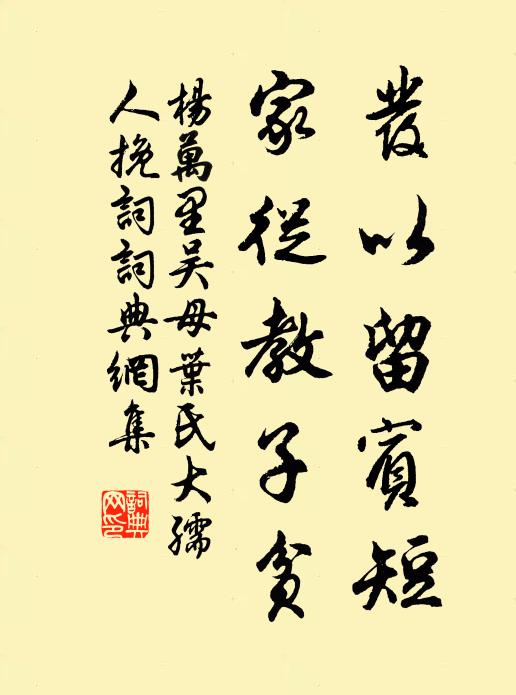 發以留賓短
家從教子貧
楊萬里吳母葉氏大孺
人挽詞詞典網集
詞典
网印